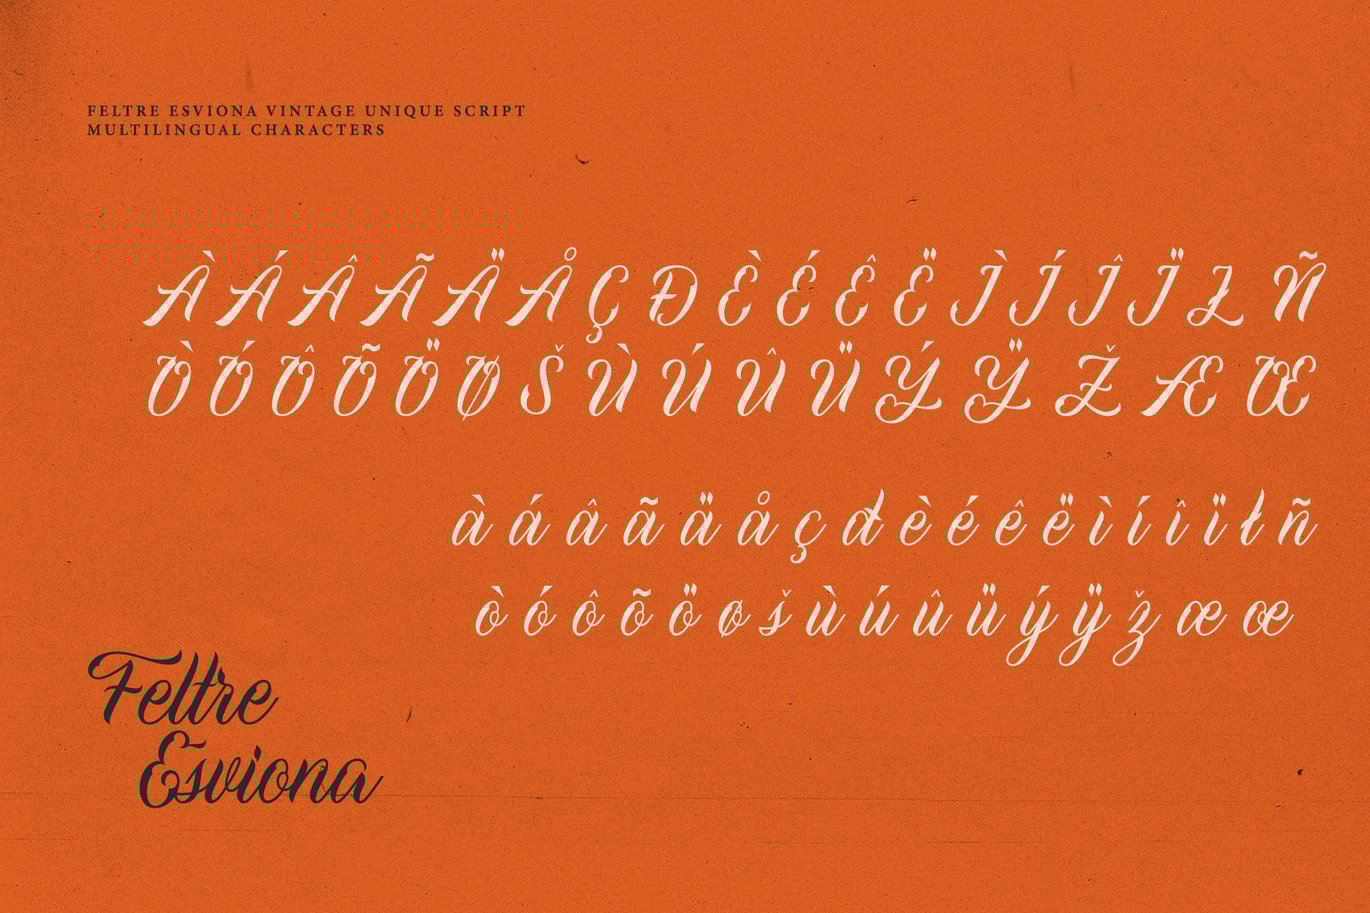 FELTRE ESVIONA VINTAGE UNIQUE SCRIPT
MULTILINGUAL CHARACTERS
À Á Â Ã Ä Å Ç Đ È É Ê Ë Ì Í Î Ï Ł Ñ
Ò Ó Ô Õ Ö Ø Š Ù Ú Û Ü Ý Ÿ Ž Æ Œ
à á â ã ä å ç đ è é ê ë ì í î ï ł ñ
ò ó ô õ ö ø š ù ú û ü ý ÿ ž æ œ
Feltre
Esviona